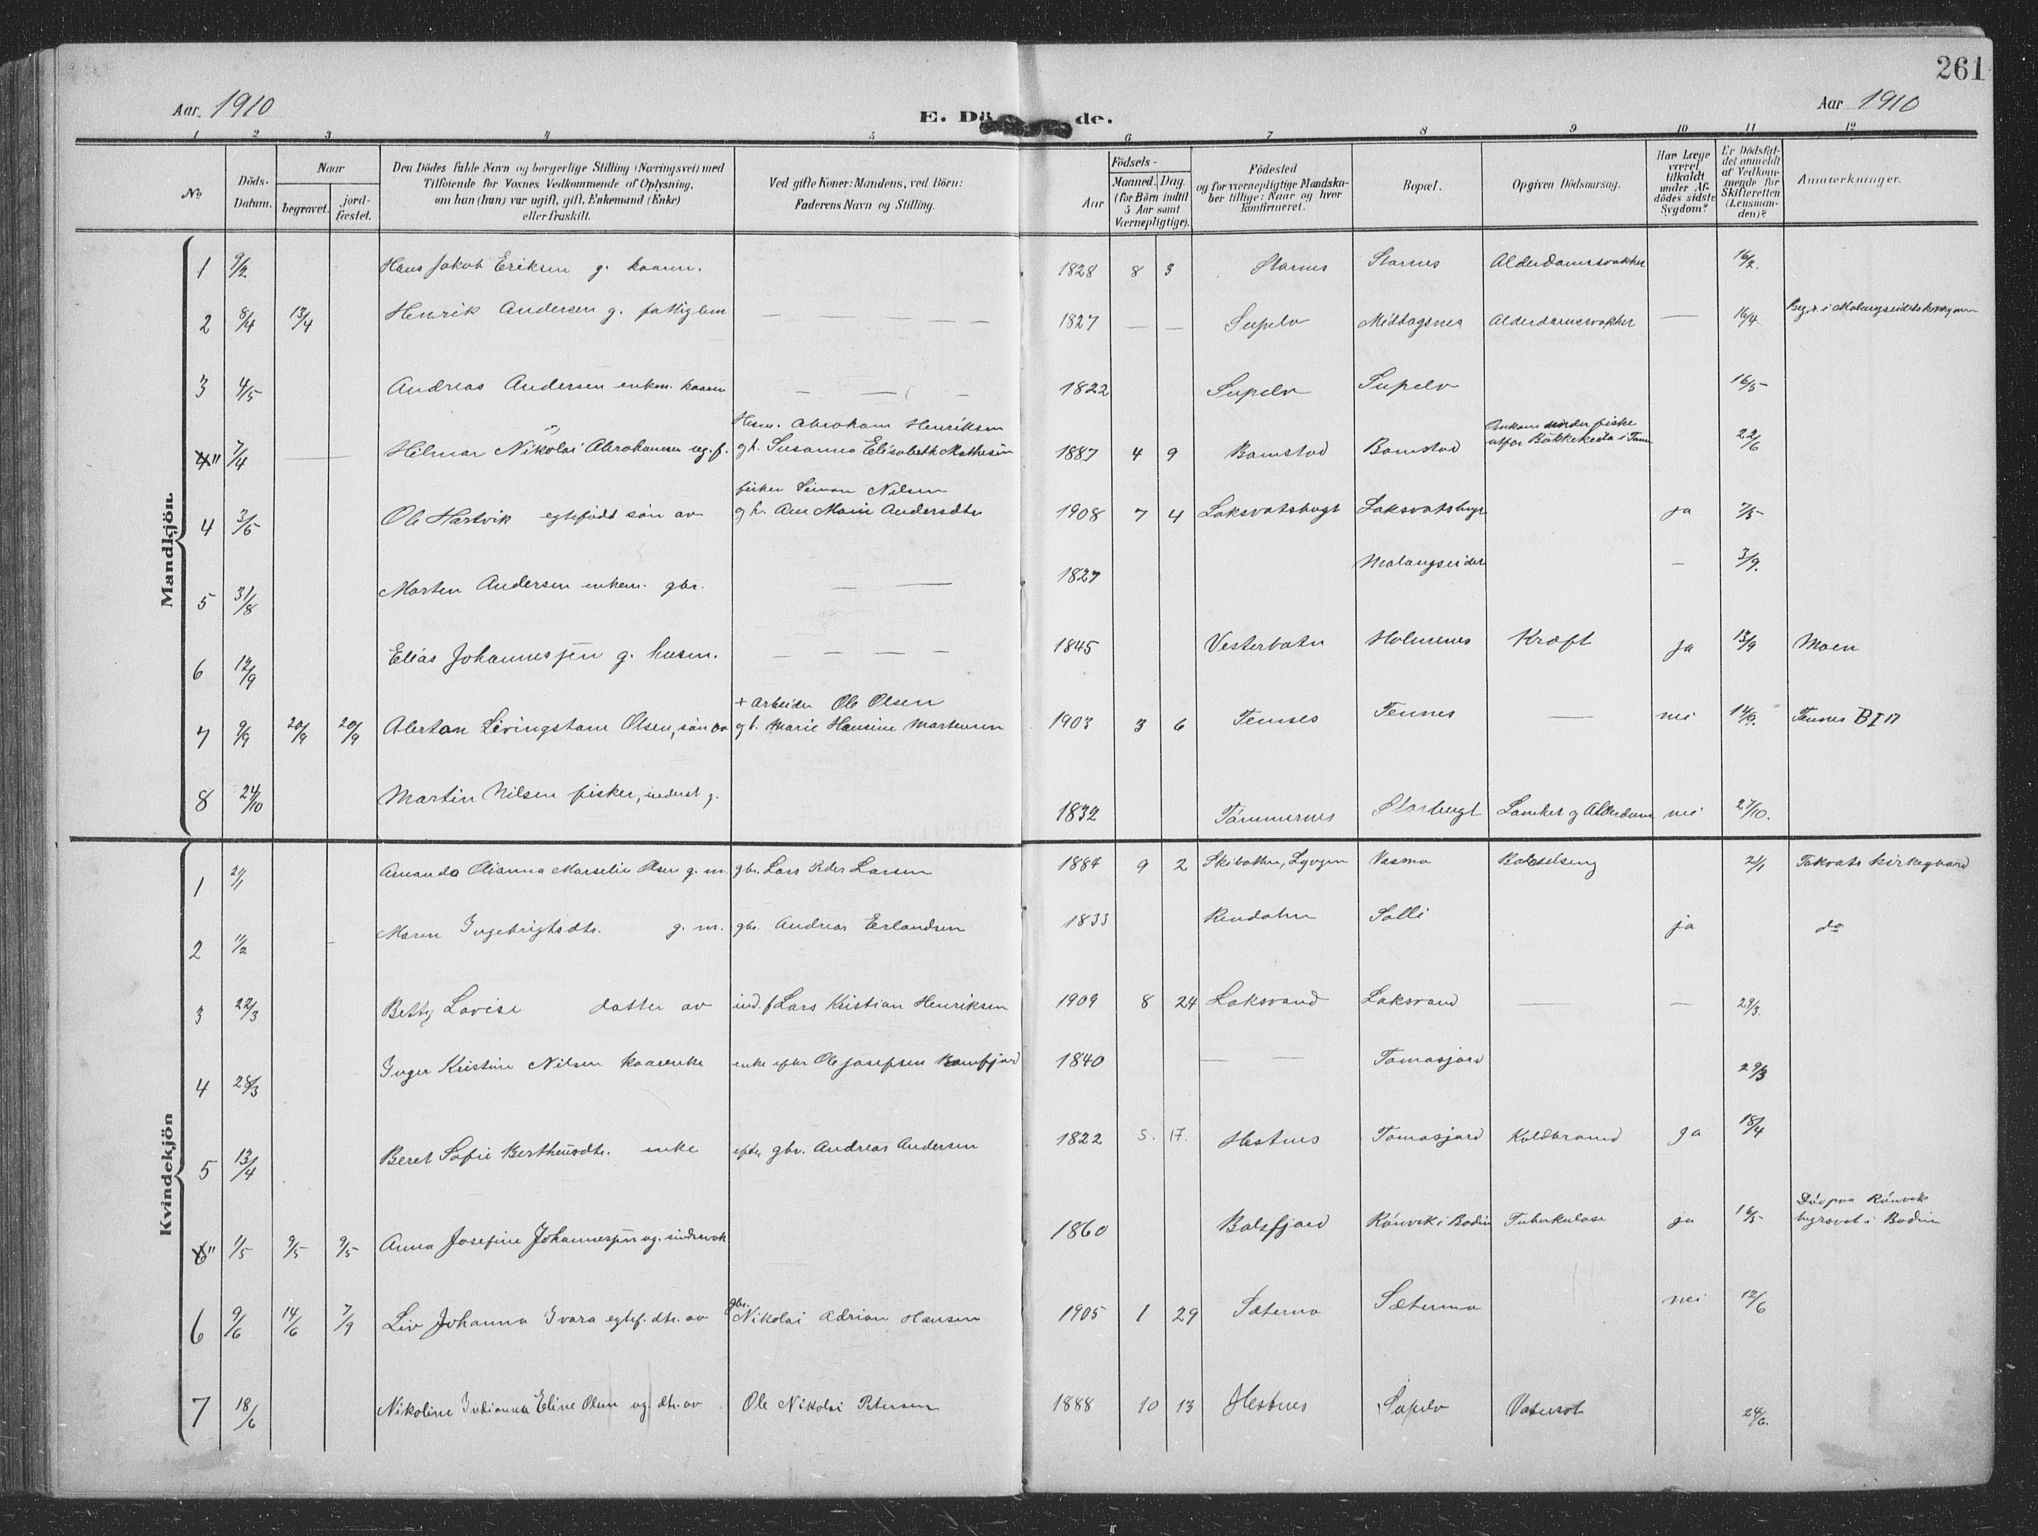 261
Aar 1910 E. Dö de. Aar 1910
1 2 3 4 5 6 7 8 9 10 11 12
No Döds-Datum. Naar begravet. jord-fæstet. Den Dödes fulde Navn og borgerlige Stilling (Næringsvei) med Tilföiende for Voxnes Vedkommende af Oplysning, om han (hun) var ugift, gift, Enkemand (Enke) eller fraskilt. Ved gifte Koner: Mandens, ved Börn: Faderens Navn og Stilling. Födsels- Aar Maaned. Dag. (for Börn indtil 5 Aar samt Værnepligtige). Födested og for værnepligtige Mandska-ber tillige: Naar og hvor konfirmeret. Bopæl. Opgiven Dödsaarsag. Har Læge været tilkaldt under Af-dödes sidste Sygdom? Er Dödsfal-det anmeldt af Vedkom-mende for Skifteretten (Lensman-den)? Anmærkninger.
Mandkjön.
1 9/2 Hans Jakob Eriksen g. kaarm. 1828 8 3 Starnes Starnes Alderdomssvakker 16/2.
2 8/4 13/4 Henrik Andersen g. fattiglem — — — — — 1827 — — Supelv Middagsnes Alderdomssvakker — 16/4. Begr. i
3 4/5 Andreas Andersen enkm. kaarm — — — 1822 Supelv Supelv 16/5
Abraham Henriksen
4" 7/4 — — Hilmar Nikolai Abrahamsen ug. f. og h. Susanna Elisabeth Mathesen 1887 4 9 Bomstad Bomstad Omkom under fiske utfor 22/6
fisker Simon Nilsen
4 3/5 Ole Hartvik egtefödt sön av og h. Ane Marie Andersdtr 1908 7 4 Laksvatsbugt Laksvatsbugt ja 7/5
5 31/8 Morten Andersen enkem. gbr. — — 1827 Malangseidet — 3/9.
6 12/9 Elias Johannesjen g. husm. — — — — 1845 Vesterbotn Holmenes Kræft ja 13/9 Moen
+ Arbeider Ole Olsen
7 9/9 20/9 20/9 Alertan Livingstane Olsen, sön av og h. Marie Hansine Martensen 1903 3 6 Tennes Tennes — nei 14/9. Tennes
8 24/10 Martin Nilsen fisker, inderst g. 1832 Tömmernes Storbugt nei 27/10.
Kvindekjön
1 2/1 Amanda Olianna Marselie Olsen g. m. gbr. Lars Peder Larsen 1884 9 2 Skibotten, Lyngen Nesmo 21/1 Takvats kirkegaard
2 11/2 Maren Ingebrigtsdtr. g. m. gbr. Andreas Erlandsen 1833 Rendalen Solli ja do
3 22/3 Betty Lovise datter av ind. f Lars Kristian Henriksen 1909 8 24 Laksvand Laksvand — — 29/3.
4 28/3 Inger Kristine Nilsen kaarenke enke efter Ole Josefsen Ramfjord 1840 — — Tomasjord 29/3
5 13/4 Beret Sofie Bertheusdtr. enke efter gbr. Andreas Andersen 1822 5. 17. Hestnes Tomasjord Koldbrand ja 18/4
6" 1/5 9/5 9/5 Anna Josefine Johannesjen ug. sindssvak 1860 Balsfjord Rönvik i Bodin Tuberkulose ja 16/5 Död paa Rönvik begravet i Bodin
6 9/6 14/6 7/9 Liv Johanna Ivara egtef. dtr. av gbr. Nikolai Adrian Hansen 1905 1 29 Sætermo Sætermo nei 12/6
7 18/6 Nikoline Indianna Eline Olsen ug. dtr. av Ole Nikolai Petersen 1888 10 13 Hestnes Supelv Vatersot 24/6.